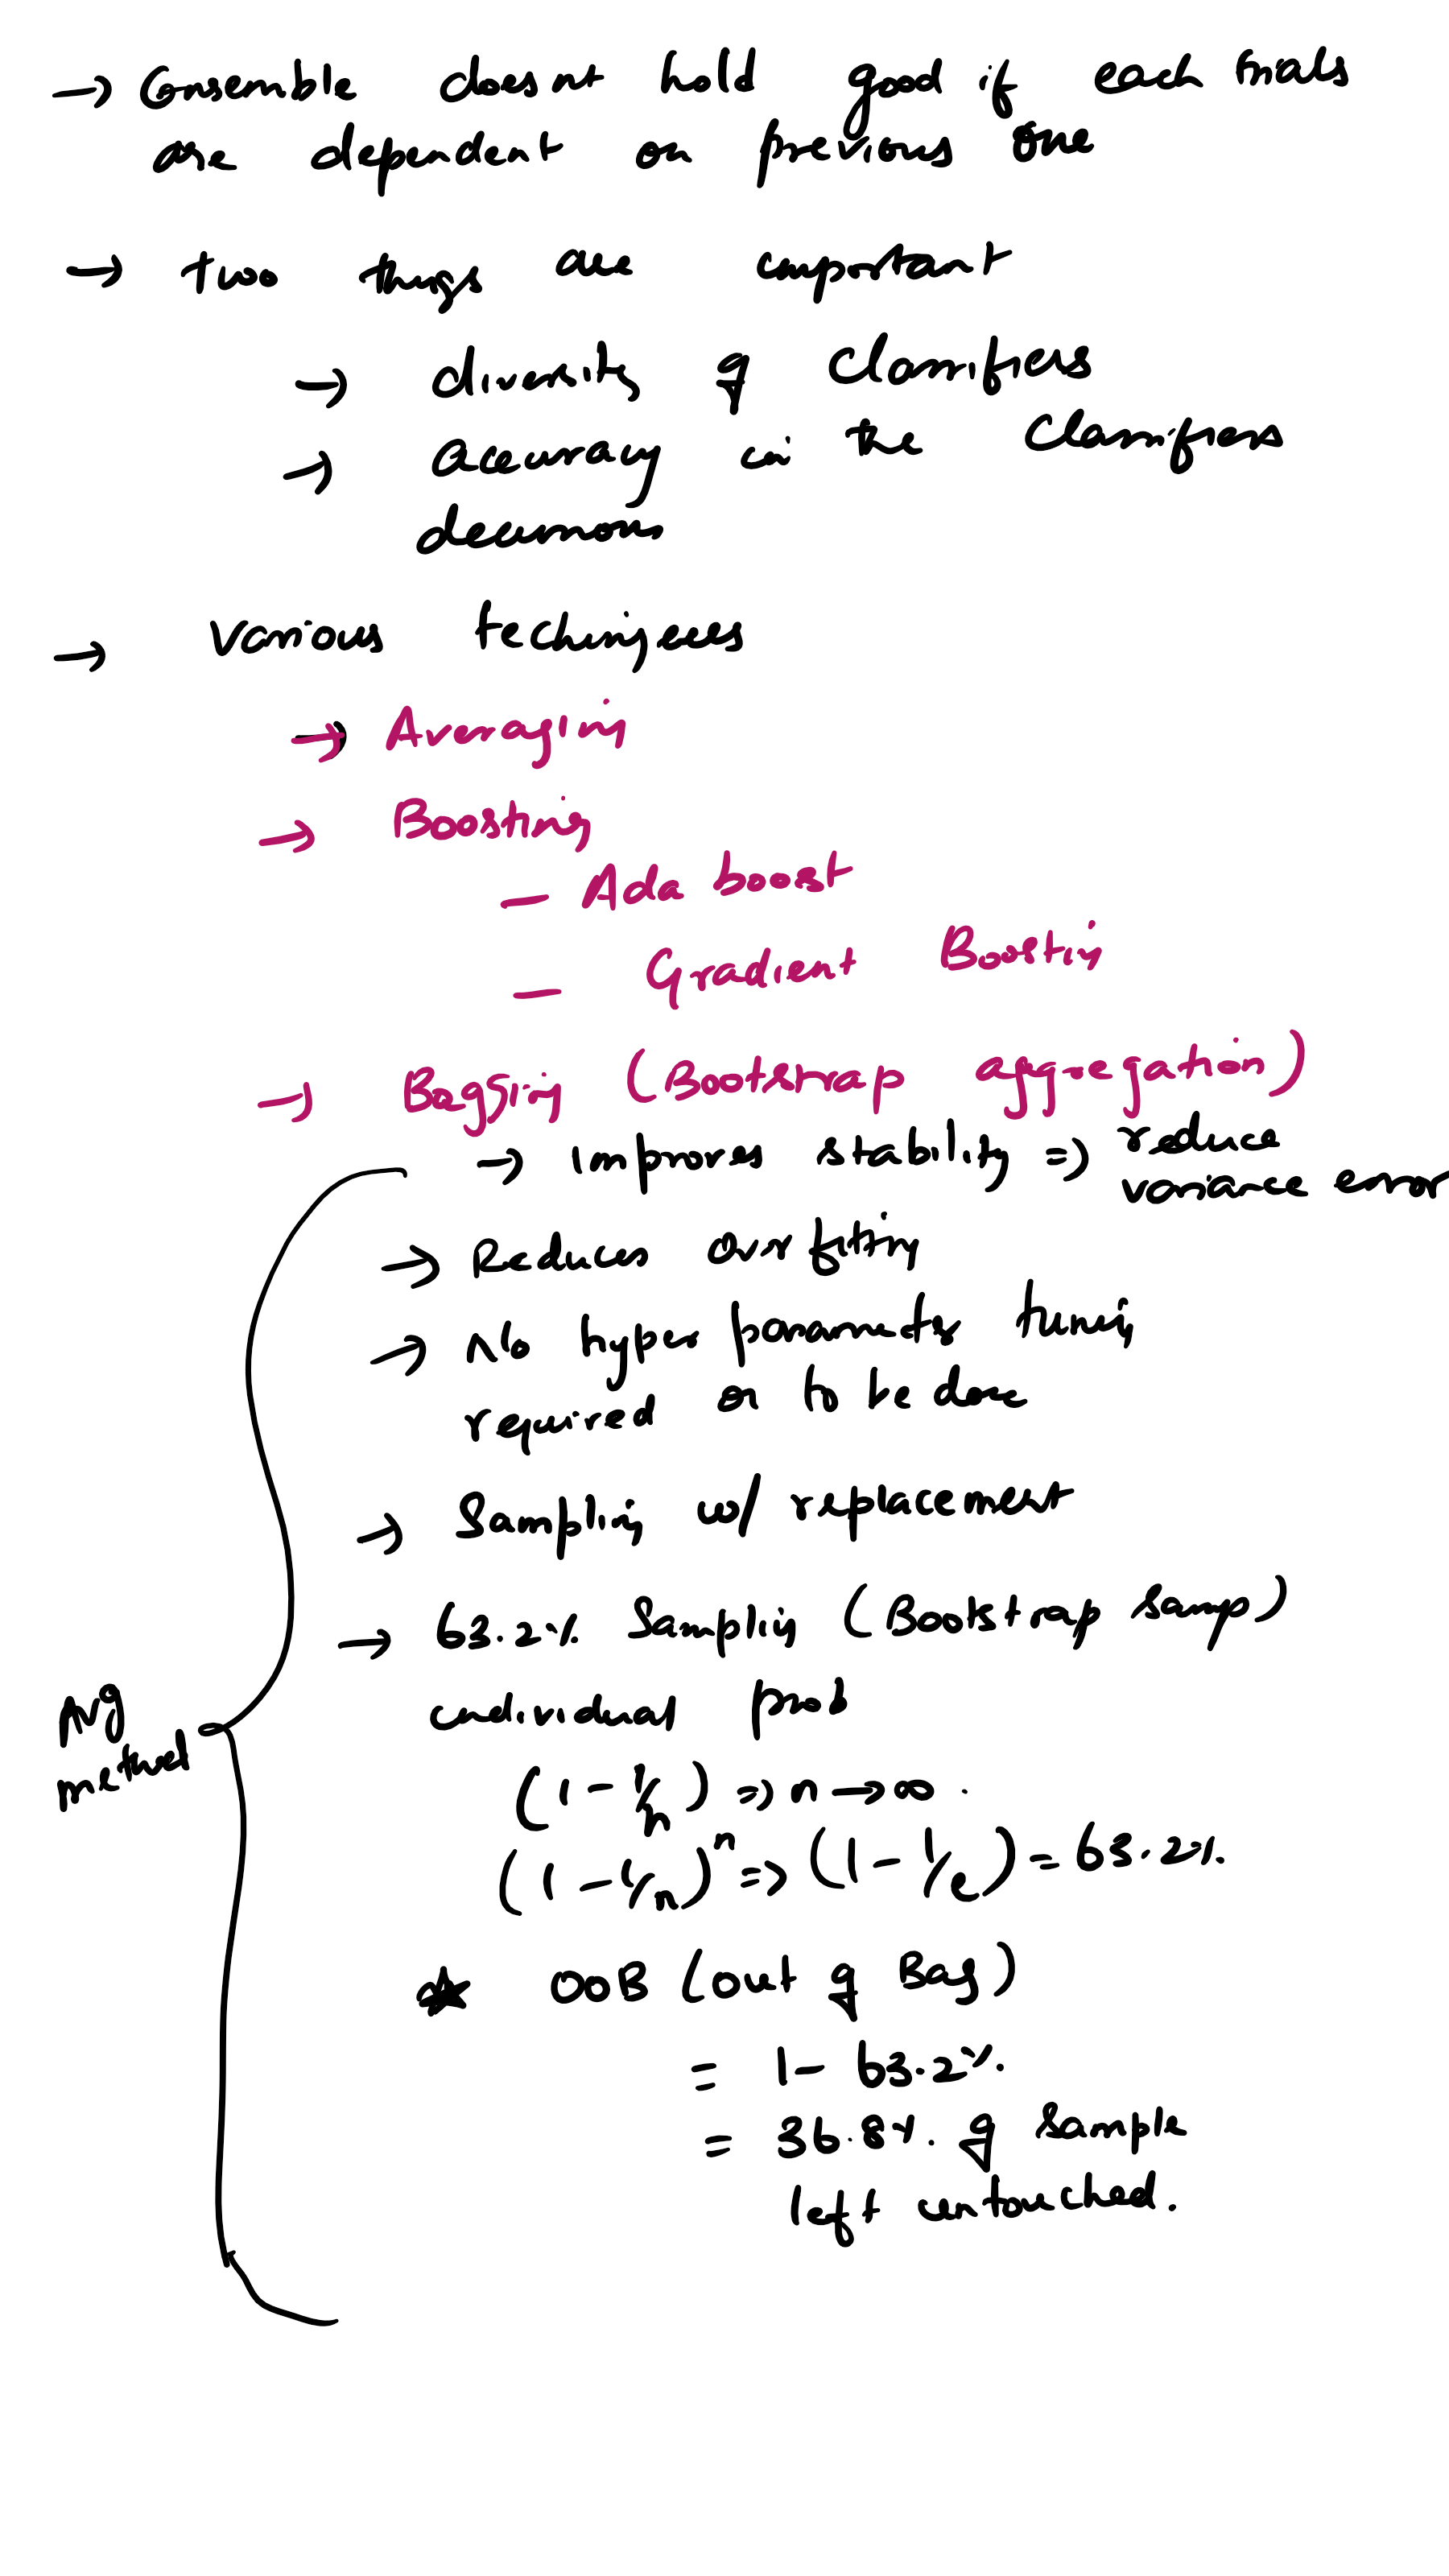 → Ensemble doesnt hold good if each trials
are dependent on previous one
→ two things are important
→ diversity of classifiers
→ accuracy in the classifiers
decisions
→ various techniques
→ Averaging
→ Boosting
- Ada boost
- Gradient Boosting
→ Bagging (Bootstrap aggregation)
→ Improves stability => reduce
variance error
→ Reduces overfitting
→ No hyper parameter tuning
required or to be done
→ Sampling w/ replacement
→ 63.2% Sampling (Bootstrap samp)
individual prob
(1 - 1/n) => n → ∞
(1 - 1/n)ⁿ => (1 - 1/e) = 63.2%
Avg
method
★ OOB (out of Bag)
= 1 - 63.2%.
= 36.8%. of sample
left untouched.